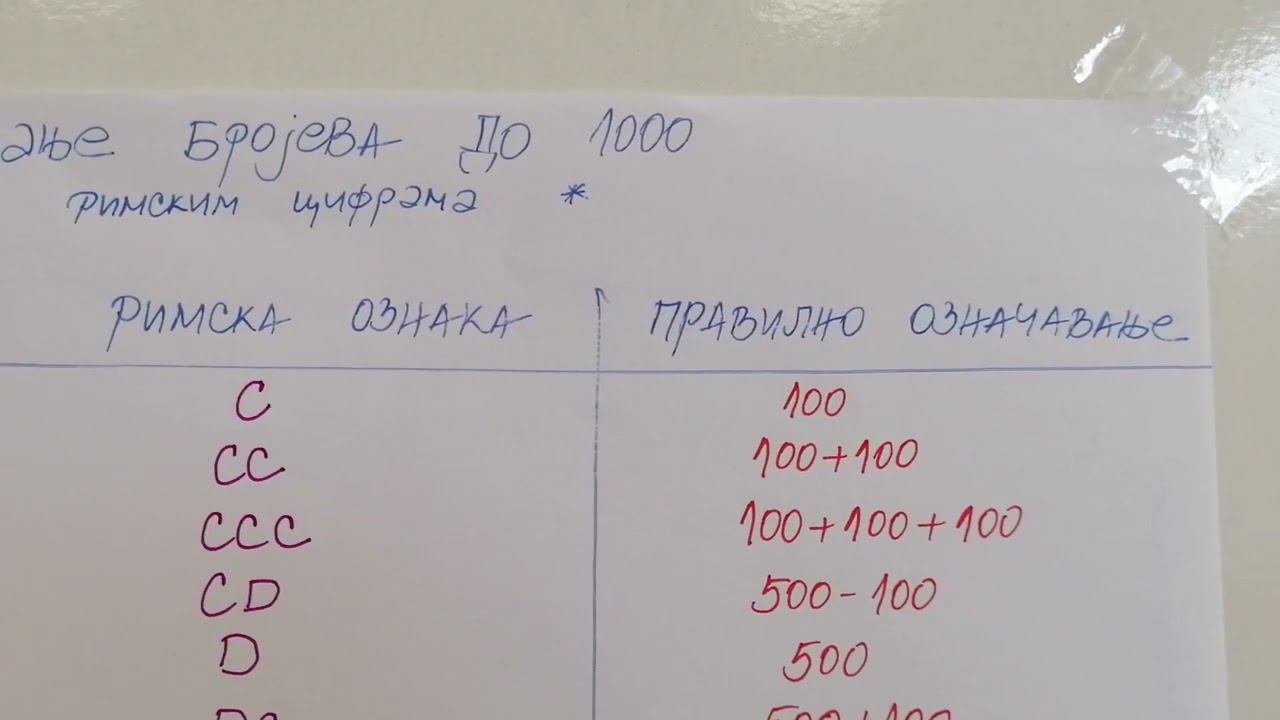 БРОЈЕВА ДО 1000
РИМСКИМ ЦИФРАМА *
РИМСКА ОЗНАКА ПРАВИЛНО ОЗНАЧАВАЊЕ
C 100
CC 100+100
CCC 100+100+100
CD 500-100
D 500